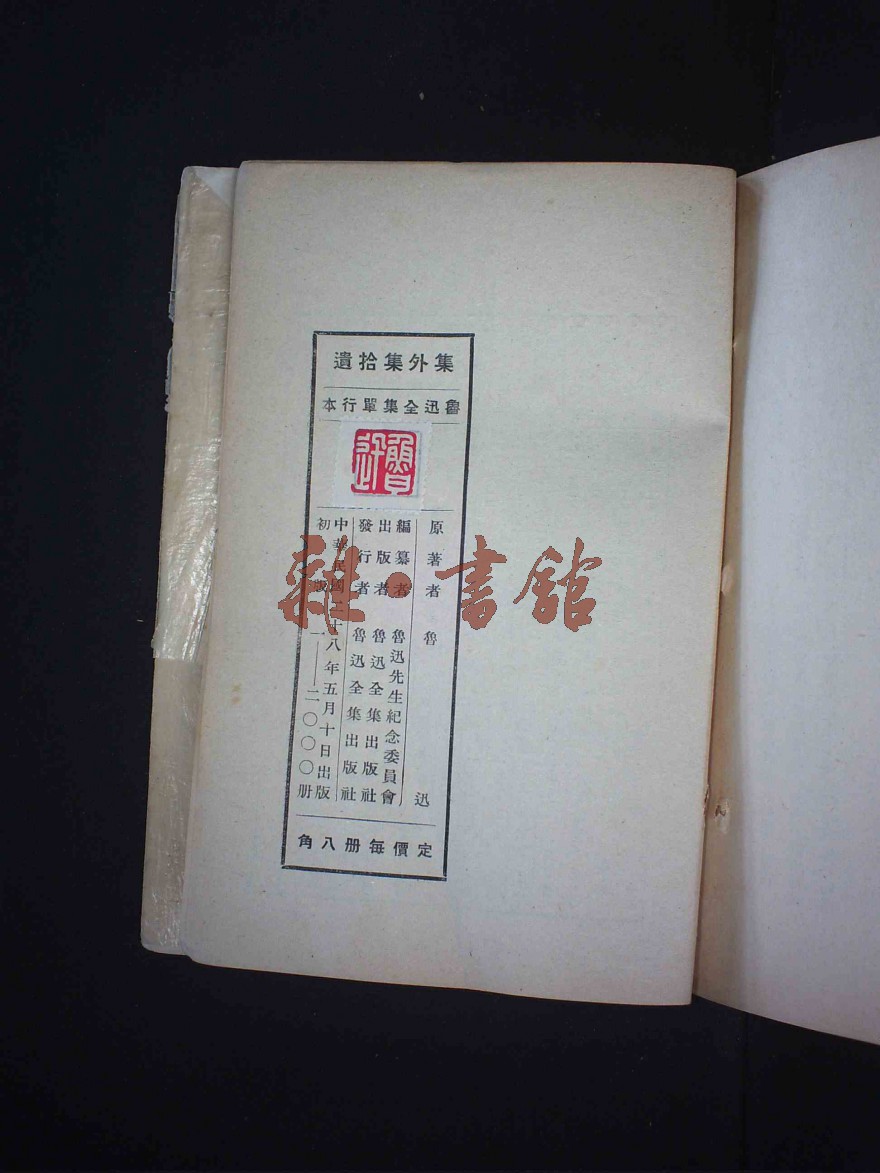 集外集拾遺
魯迅全集單行本
魯迅
原著者 魯迅
編纂者 魯迅先生紀念委員會
出版者 魯迅全集出版社
發行者 魯迅全集出版社
中華民國二十八年五月十日出版
初版 一——二〇〇〇册
定價每册八角
雜·書館